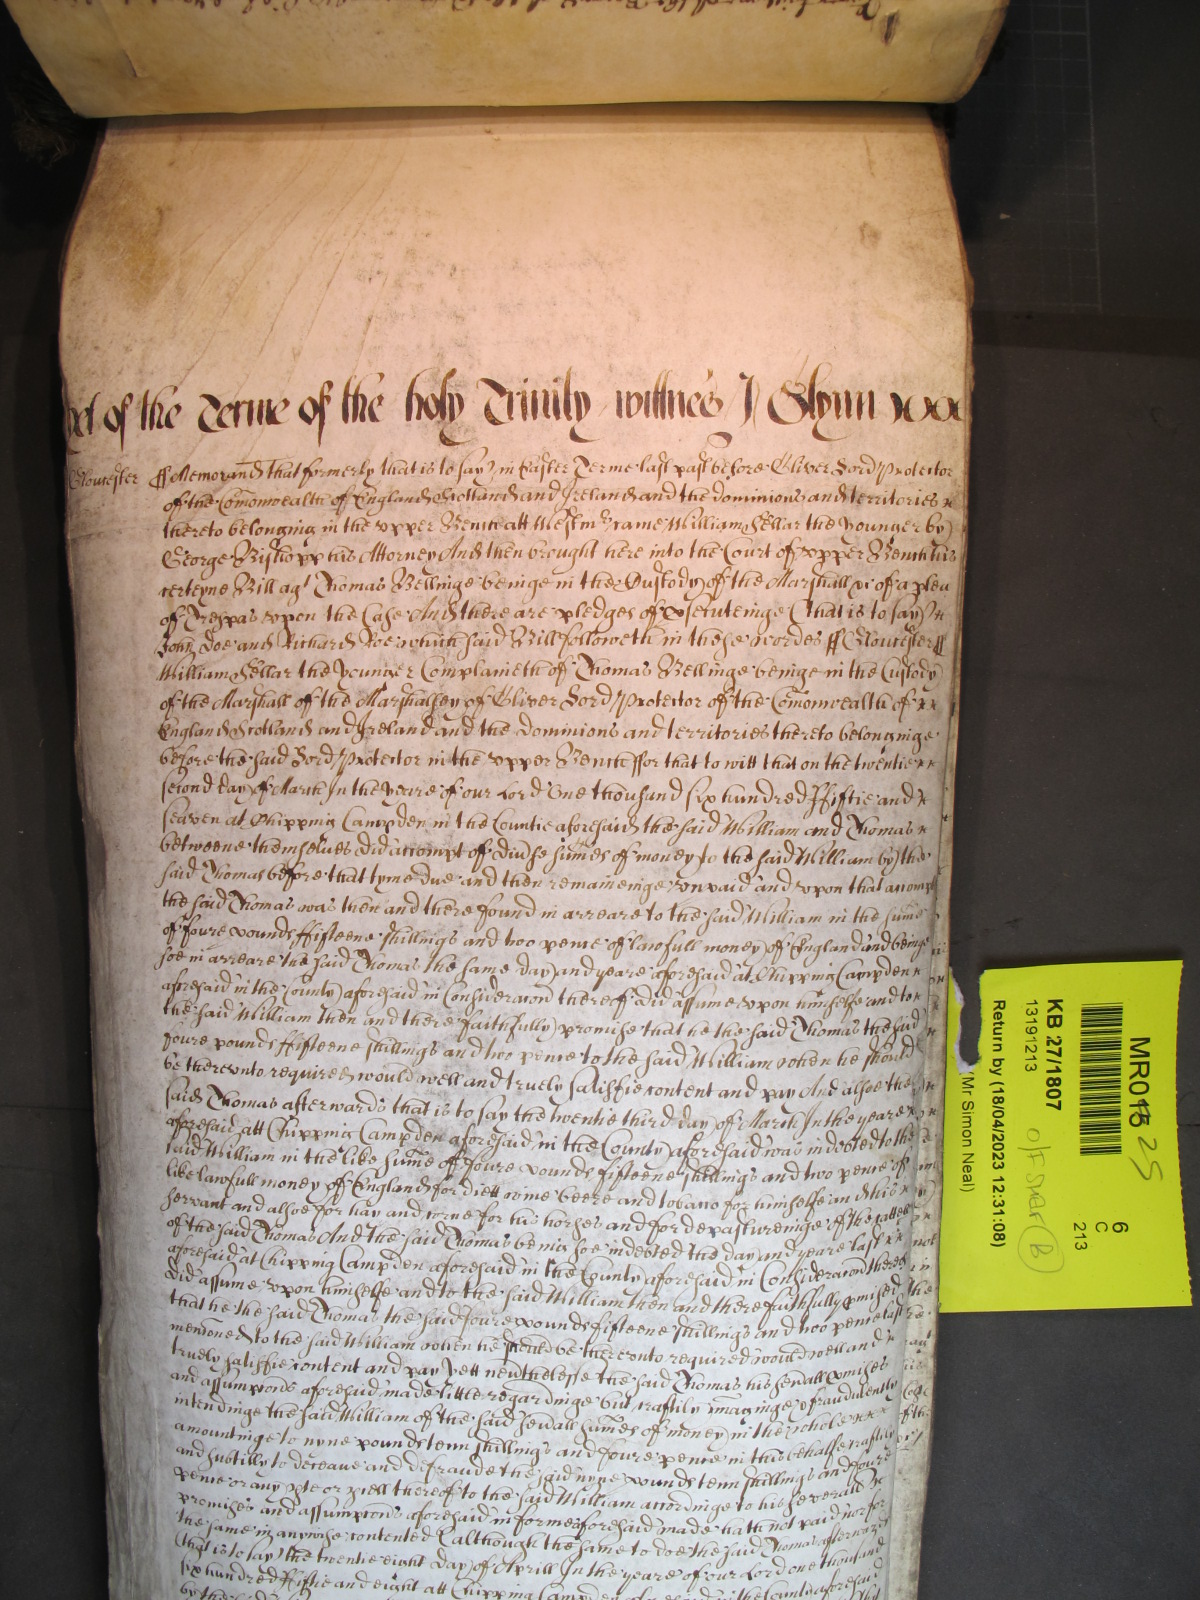 yet of the Terme of the holy Trinity wittnes J Glynn xxx
Gloucester
ff Memorand That formerly that is to say in Easter Terme last past before Oliver Lord Protector
of the Comonwealth of England Scotland and Ireland and the dominions and territories
thereto belonging in the upper Bench att Westmr came William Hellar the younger by
George Bishopp his Attorney And then brought here into the Court of upper Bench his
certeyne Bill agt Thomas Bellinge beinge in the Custody of the Marshall &c of a plea
of Trespas upon the Case And there are pledges of prosecuteinge (that is to say)
John Doe and Richard Roe which said Bill followeth in these wordes ff Gloucester ff
William Hellar the younger Complaineth of Thomas Bellinge beinge in the Custody
of the Marshall of the Marshalsey of Oliver Lord Protector of the Comonwealth of
England Scotland and Ireland and the Dominions and territories thereto belonginge
before the said Lord Protector in the upper Bench For that to witt that on the twentie
second day of March In the yeare of our Lord One thousand six hundred Fiftie and
seaven at Chipping Campden in the Countie aforesaid the said William and Thomas
betweene themselves did accompt of divse sumes of money to the said William by the
said Thomas before that tyme due and then remaineinge unpaid and upon that accompt
the said Thomas was then and there found in arreare to the said William in the sume
of foure pounds Fifteene shillings and two pence of lawfull money of England and beinge
soe in arreare the said Thomas the same day and yeare aforesaid at Chipping Campden
aforesaid in the County aforesaid in Consideracon thereof did assume upon himselfe and to
the said William then and there faithfully promise that he the said Thomas the said
foure pounds Fifteene shillings and two pence to the said William when he should
be thereunto required would well and truely satisfie content and pay And alsoe the
said Thomas afterwards that is to say the twentie third day of March In the yeare
aforesaid att Chipping Campden aforesaid in the County aforesaid was indebted to the
said William in the like sume of Foure pounds fifteene shillings and two pence of
like lawfull money of England for diett wine beere and tobacco for himselfe and his
servant and alsoe for hay and corne for his horses and for depastureinge of the cattell
of the said Thomas And the said Thomas being soe indebted the day and yeare last
aforesaid at Chipping Campden aforesaid in the County aforesaid in Consideracon thereof
did assume upon himselfe and to the said William then and there faithfully pmised
that he the said Thomas the said foure pounds fifteene shillings and two pence last
menconed to the said William when he should be thereunto required would well and
truely satisfie content and pay Yett nevthelesse the said Thomas his sevall pmises
and assumpcons aforesaid made little regardinge but craftily imaginge & fraudulently
intendinge the said William of the said sevall sumes of money in the whole
amountinge to nyne pounds tenn shillings and foure pence in this behalfe craftily
and subtilly to deceave and defraude the said nyne pounds tenn shillings and foure
pence or any pte or pcell thereof to the said William accordinge to his severall
promises and assumpcons aforesaid in forme aforesaid made hath not paid nor for
the same in anywise contented (although the same to doe the said Thomas afterwards
(that is to say) the twentie eight day of Aprill In the yeare of our Lord one thousand
six hundred Fiftie and eight att Chipping Campden aforesaid in the County aforesaid
MR016
25
6
C
213
KB 27/1807
13191213
O/FISHER (B)
Return by (18/04/2023 12:31:08)
(Mr Simon Neal)